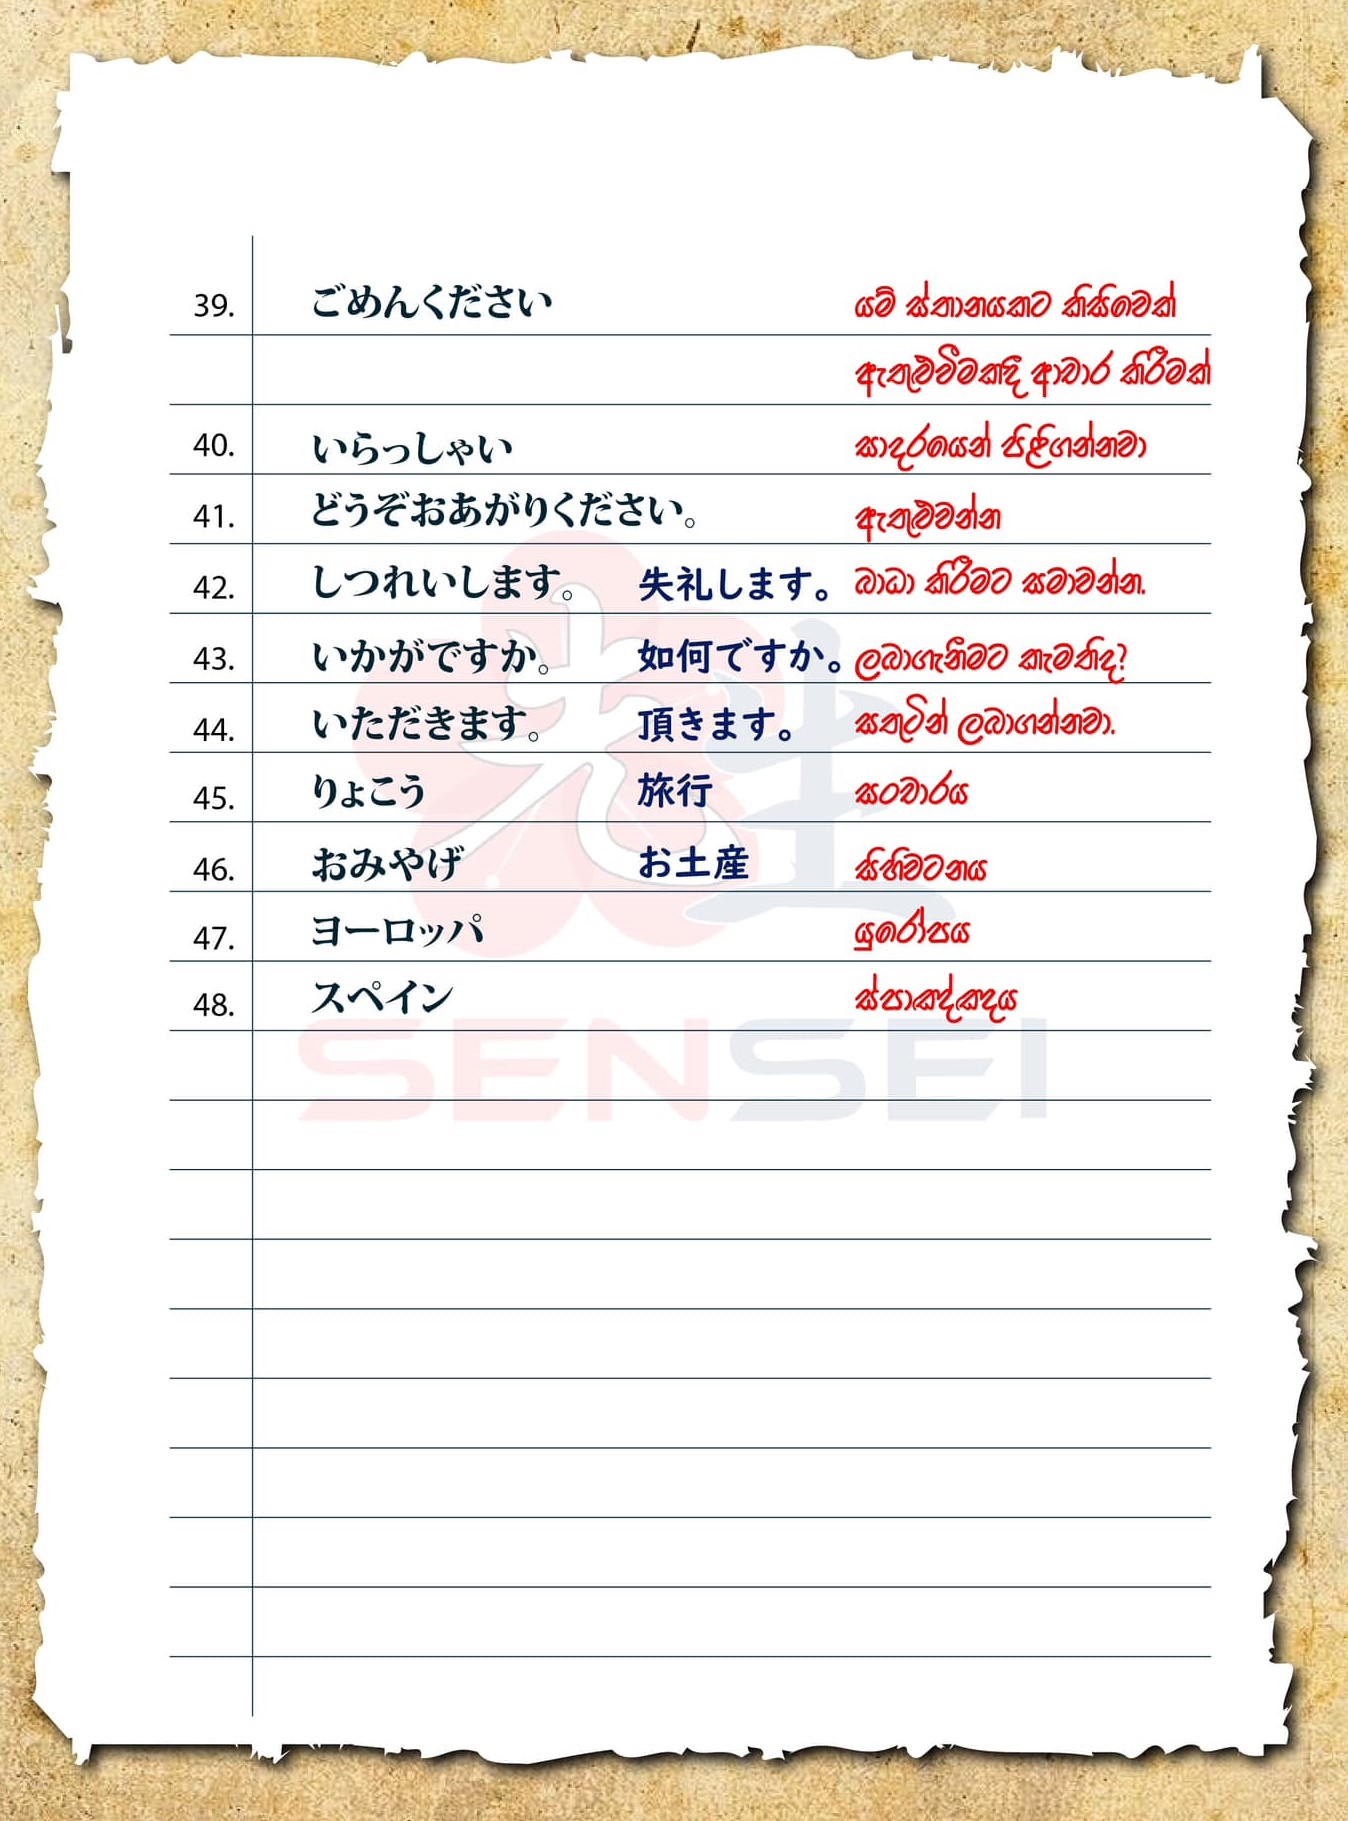 39. ごめんください යම් ස්ථානයකට කිසිවෙක්
ඇතුළුවීමකදී ආචාර කිරීමක්
40. いらっしゃい සාදරයෙන් පිළිගන්නවා
41. どうぞおあがりください。 ඇතුළුවන්න
42. しつれいします。 失礼します。 බාධා කිරීමට සමාවන්න.
43. いかがですか。 如何ですか。 ලබාගැනීමට කැමතිද?
44. いただきます。 頂きます。 සතුටින් ලබාගන්නවා.
45. りょこう 旅行 සංචාරය
46. おみやげ お土産 සිහිවටනය
47. ヨーロッパ යුරෝපය
48. スペイン ස්පාඤ්ඤය
先生
SENSEI